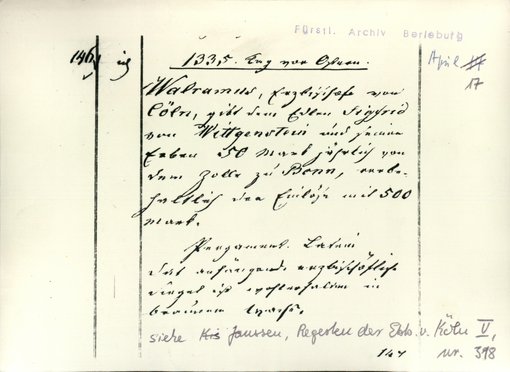 Fürstl. Archiv Berleburg
146 1335. Tag vor Ostern. April 17
Walramus, Erzbischof von
Cöln, gibt dem Edlen Sigfrid
von Wittgenstein und seinen
Erben 50 Mark jährlich von
dem Zolle zu Bonn, vorbe-
haltlich der Einlöse mit 500
Mark.
Pergament. Latein
Das anhängende erzbischöfliche
Siegel ist wohlerhalten in
braunem Wachs.
siehe Janssen, Regesten der Ebb. v. Köln V,
nr. 398
147